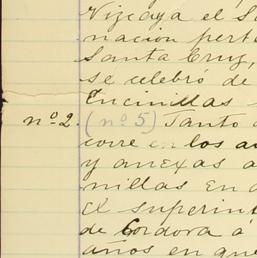 Vizcaya el S
nación pert
Santa Cruz,
se celebró de
Encinillas
nº 2. (nº 5) Tanto
corre en los a
y anexas a
nillas en
El superin
de Cordova á
años en que